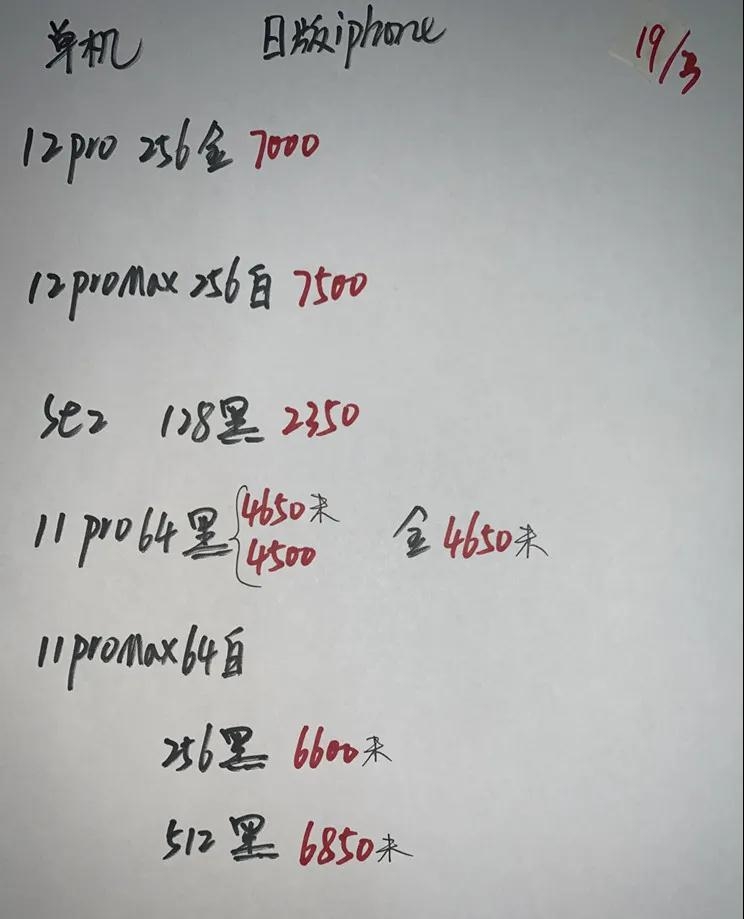 单机 日版iphone 19/3
12pro 256金 7000
12proMax 256白 7500
SE2 128黑 2350
11 pro 64黑 4650未 金 4650未
4500
11proMax 64白
256黑 6600未
512黑 6850未